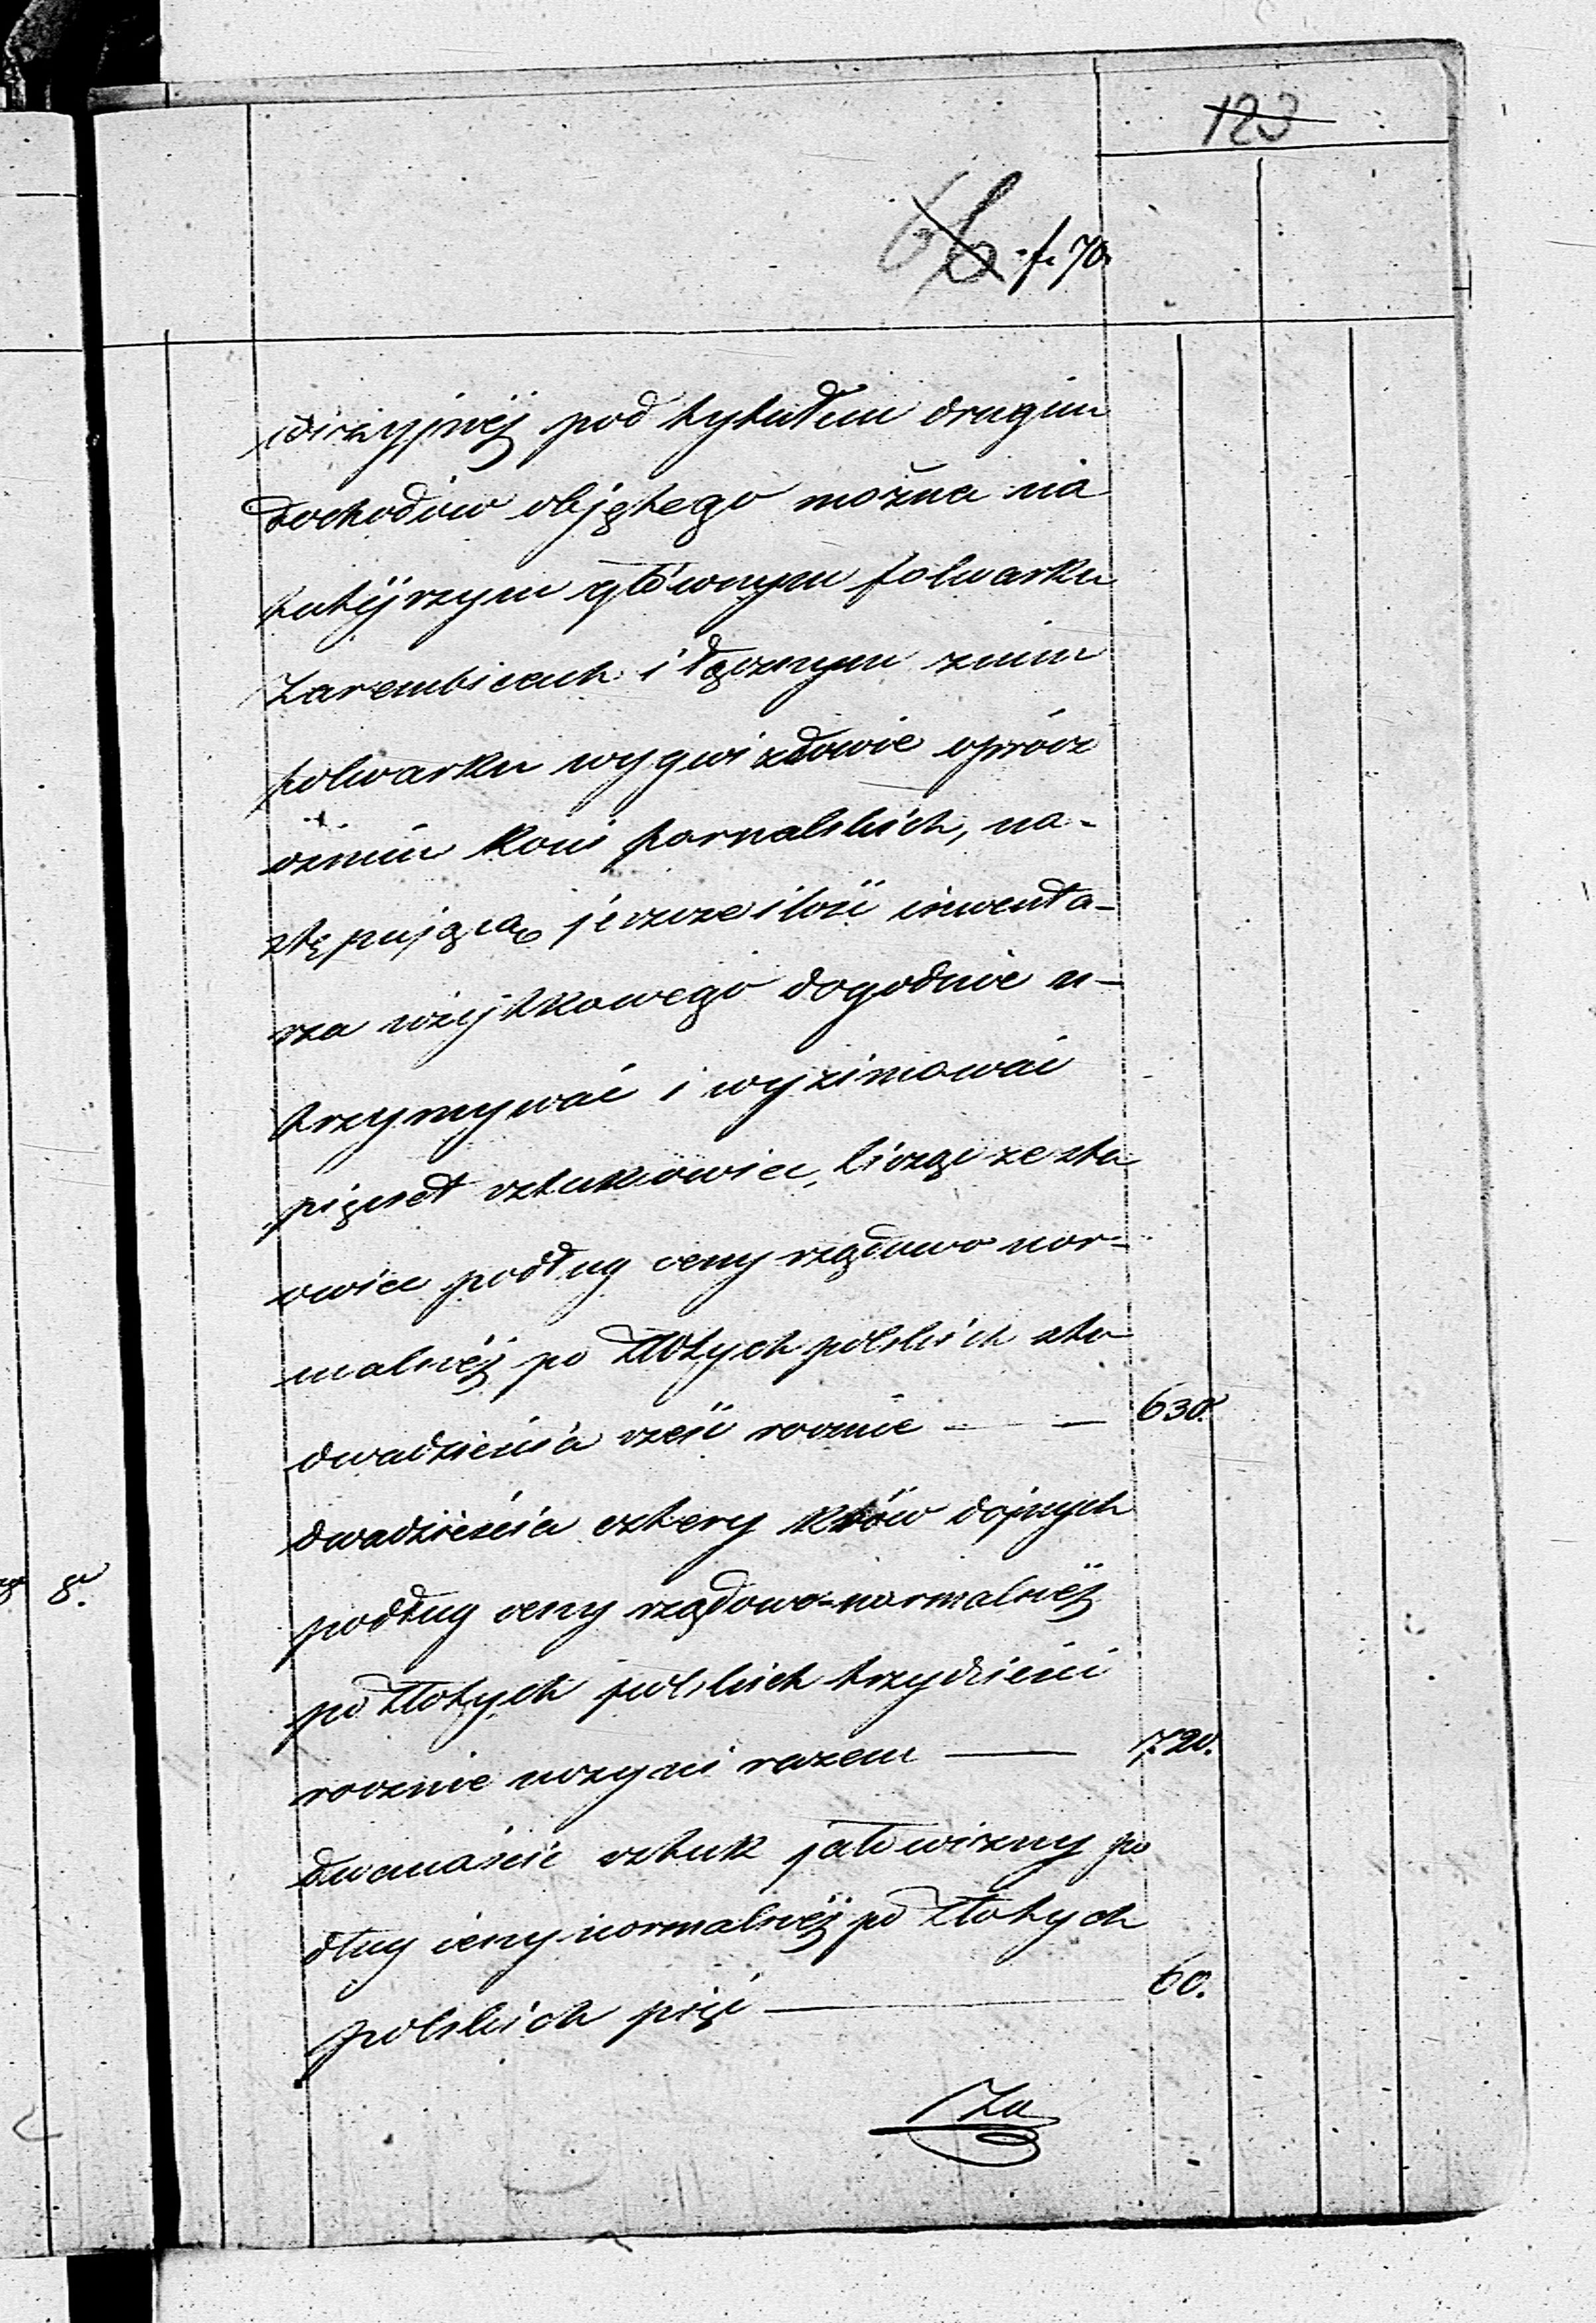 123
66 f. 70.
wizyjnéj pod tytułem drugim
dochodów objętego można na
tutéjszym głównym folwarku
Zarembicach i łącznym z nim
folwarku wygwizdowie oprócz
ośmiu koni fornalskich, na-
stępującą jeszcze ilość inwenta-
rza użytkowego dogodnie u-
trzymywać i wyzimować
pięćset sztuk owiec, licząc ze sta
owiec podług ceny rządowo nor-
malnéj po złotych polskich sto
dwadzieścia sześć rocznie — — 630.
dwadzieścia cztery krów dojnych
podług ceny rządowo-normalnéj
po złotych polskich trzydzieści
rocznie uczyni razem — 720.
dwanaście sztuk jałowizny po
dług ceny normalnéj po złotych
polskich pięć — 60.
Za
8.